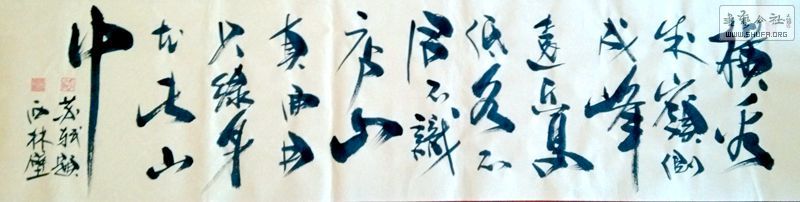 横看
成嶺側
成峰
遠近高
低各不
同不識
庐山
真面目
只緣身
在此山
中
苏軾題
西林壁
WWW.SHUFA.ORG